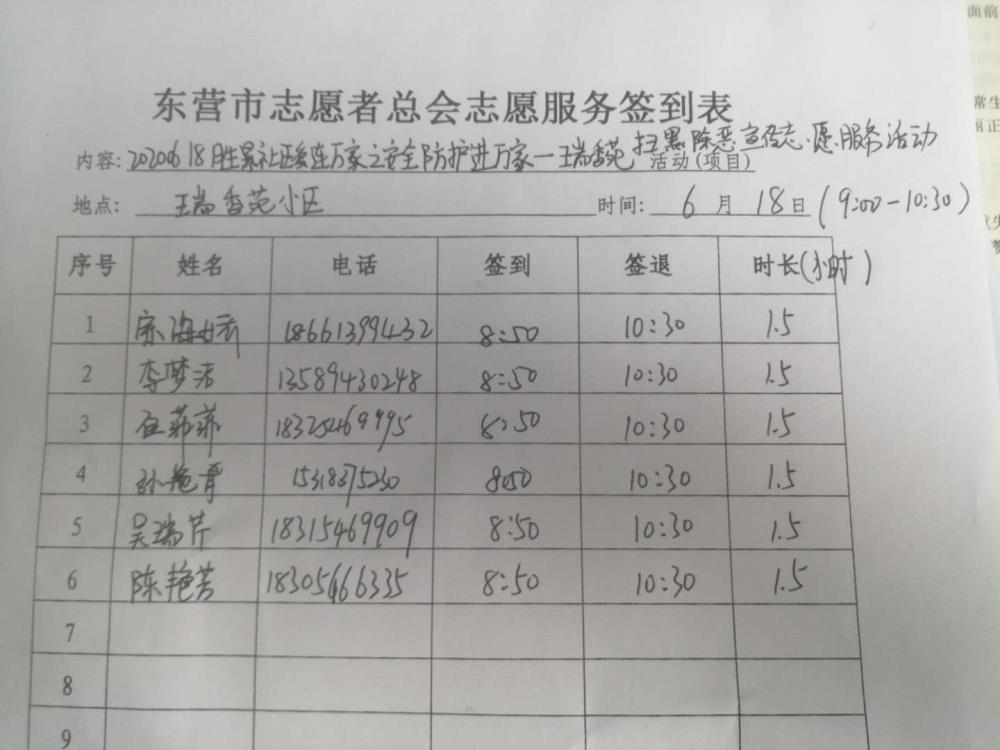 东营市志愿者总会志愿服务签到表
内容: 20200618胜景社区爱连万家之安全防护进万家—瑞香苑扫黑除恶宣传志愿服务活动 活动(项目)
地点: 瑞香苑小区 时间: 6月18日(9:00-10:30)
序号 姓名 电话 签到 签退 时长(小时)
1 宋海 18661399432 8:50 10:30 1.5
2 李梦洁 13589430248 8:50 10:30 1.5
3 菲菲 8:50 10:30 1.5
4 孙艳青 15318375230 8:50 10:30 1.5
5 吴瑞芹 18315469909 8:50 10:30 1.5
6 陈艳芳 18305466335 8:50 10:30 1.5
7
8
9
面前
常生